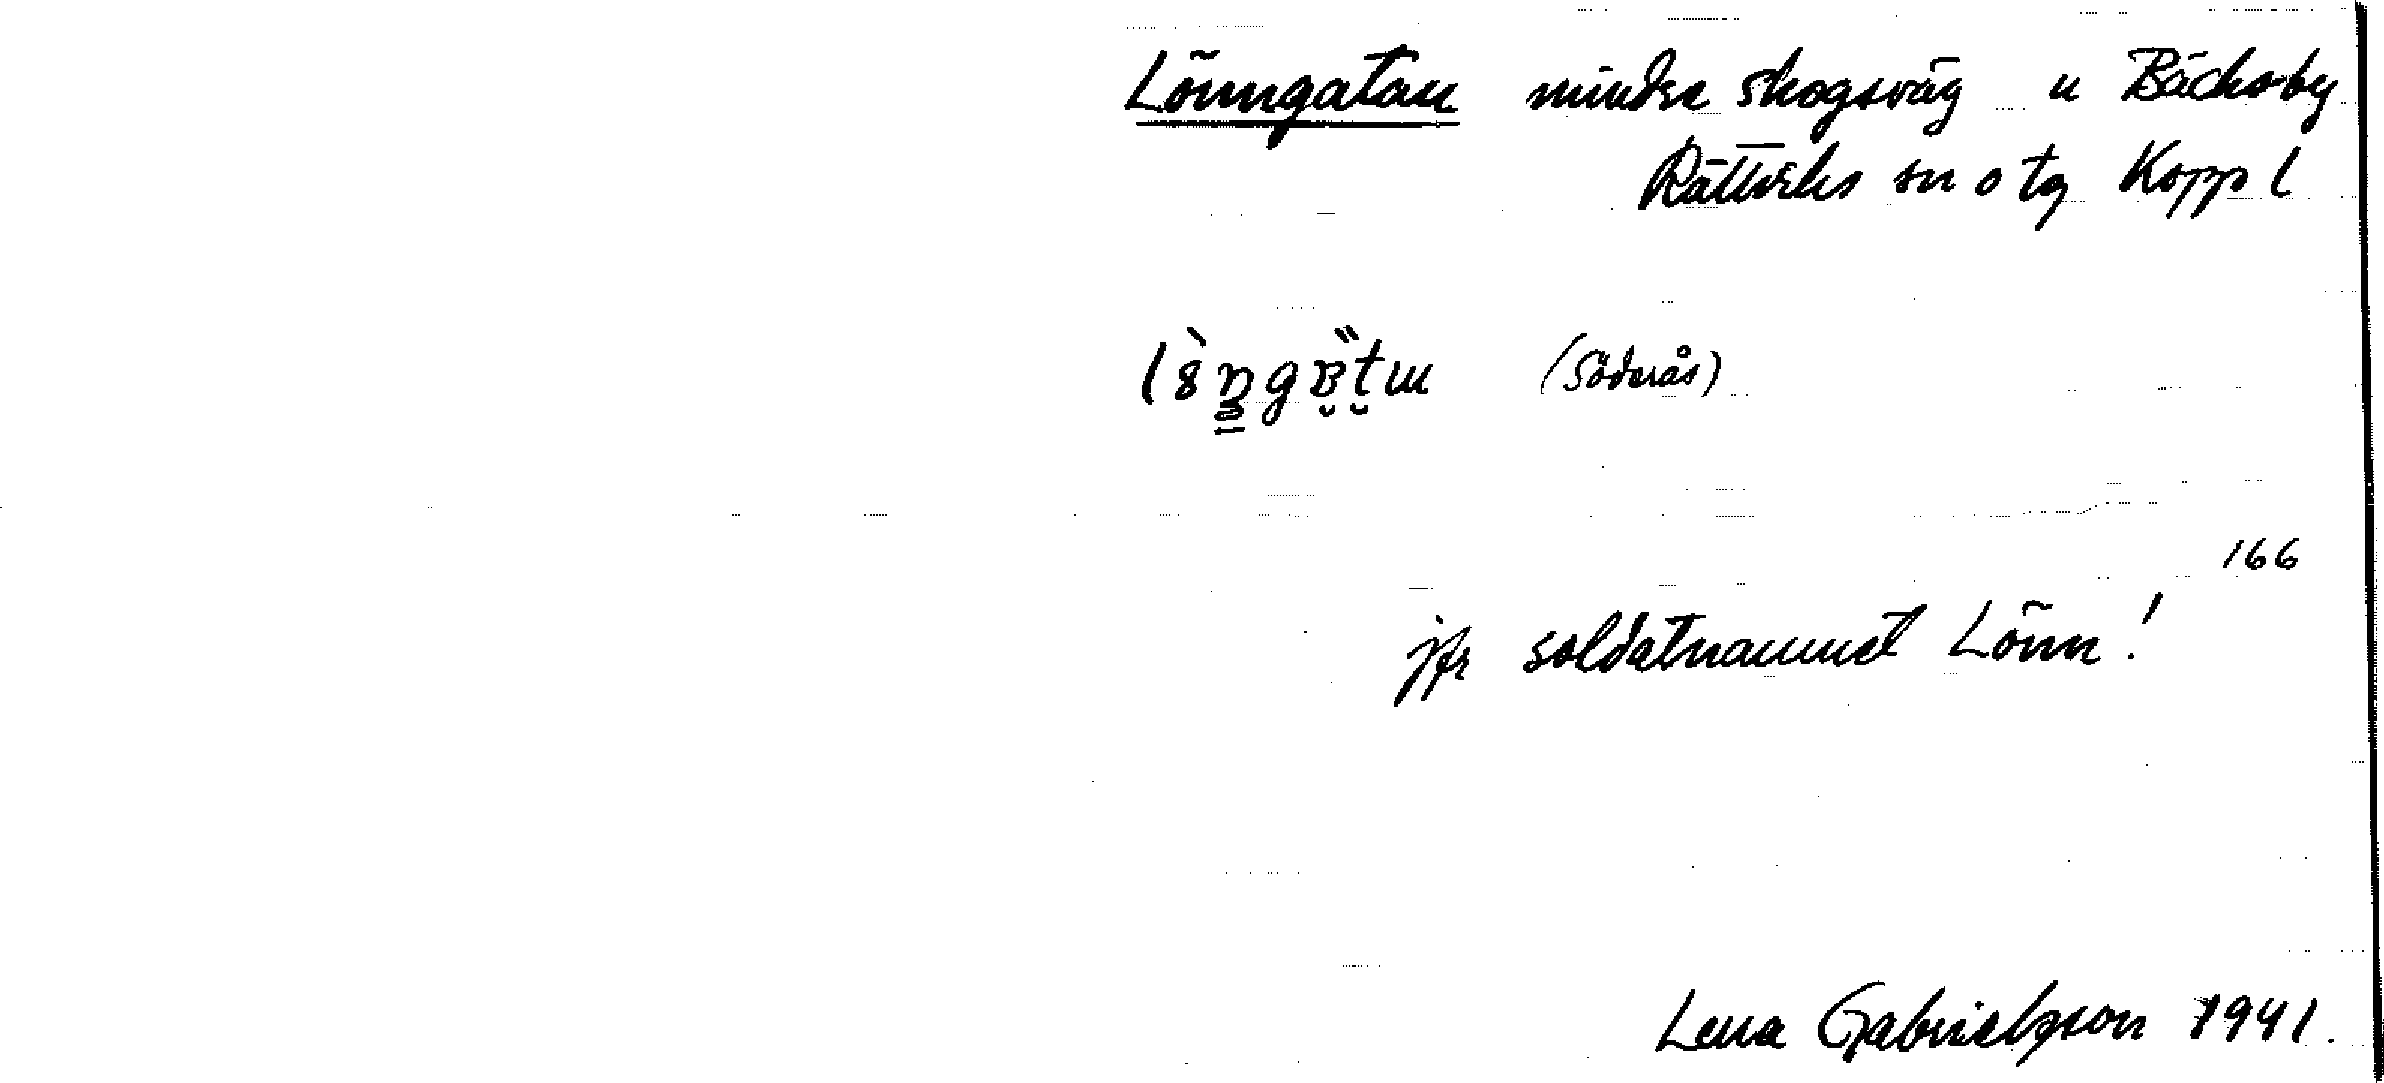 Lönngatan mindre skogsväg u Backa by
Rättviks sn o tg Kopp l
(Söderås)
166
jfr soldatnamnet Lönn!
Lena Gabrielsson 1941.